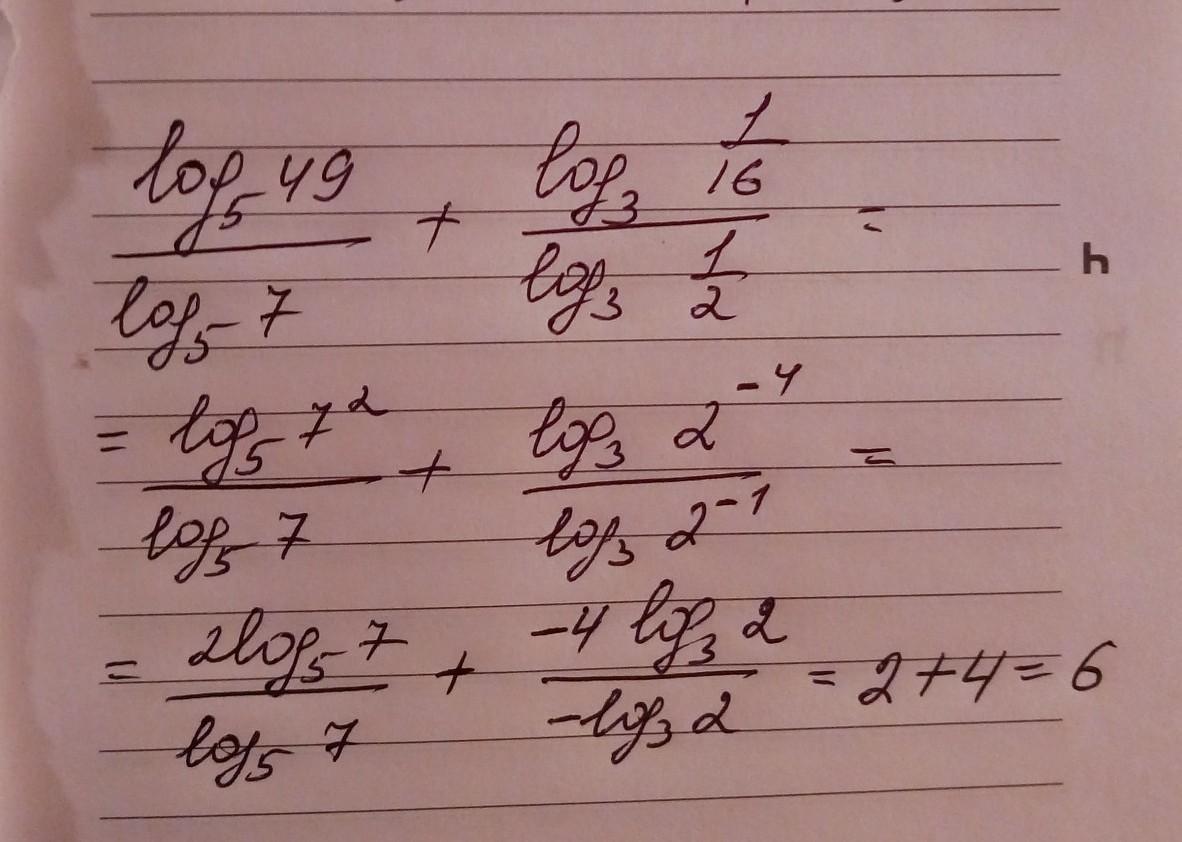 log₅ 49 / log₅ 7 + log₃ 1/16 / log₃ 1/2 =
h
= log₅ 7² / log₅ 7 + log₃ 2⁻⁴ / log₃ 2⁻¹ =
= 2log₅ 7 / log₅ 7 + -4 log₃ 2 / -log₃ 2 = 2+4=6